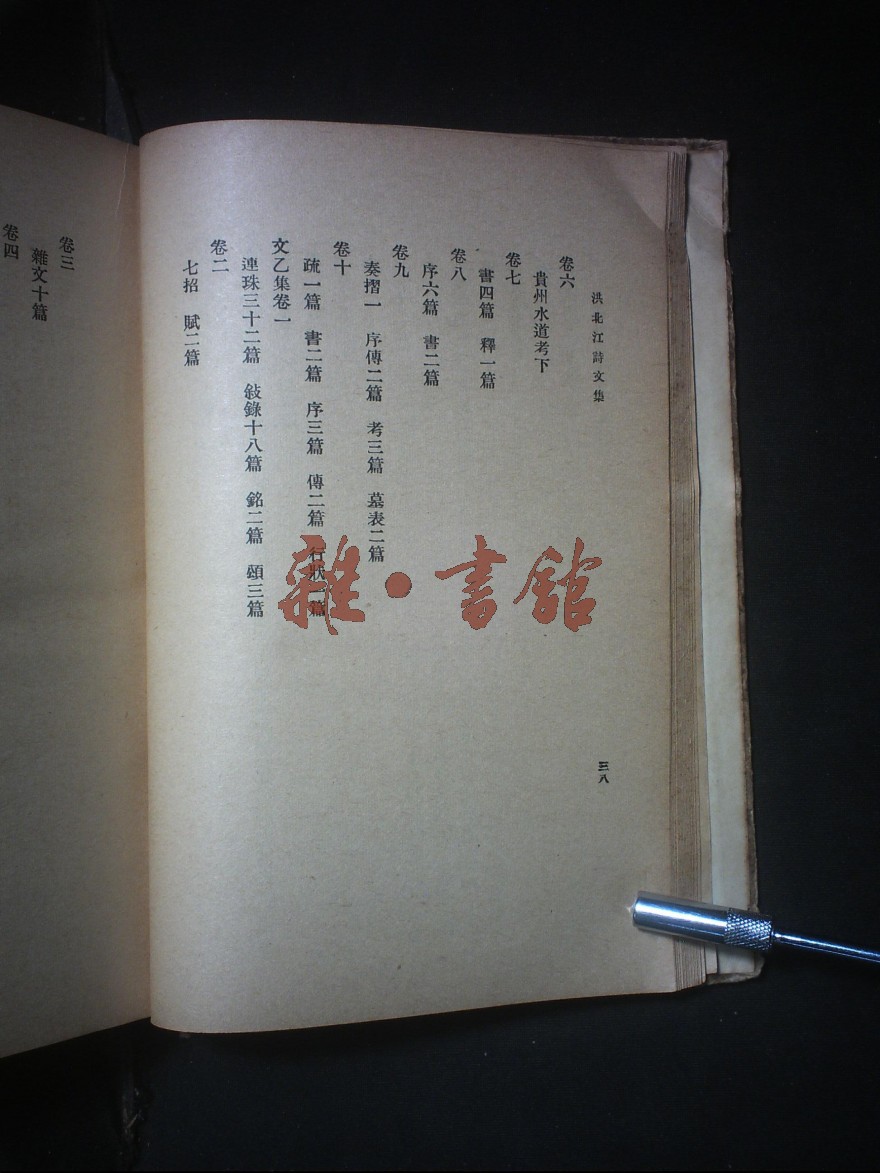 洪北江詩文集
卷六
貴州水道考下
卷七
書四篇　釋一篇
卷八
序六篇　書二篇
卷九
奏摺一　序傳二篇　考三篇　墓表二篇
卷十
疏一篇　書二篇　序三篇　傳二篇　行狀一篇
文乙集卷一
連珠三十二篇　敍錄十八篇　銘二篇　頌三篇
卷二
七招　賦二篇
三八
卷三
雜文十篇
卷四
雜·書館